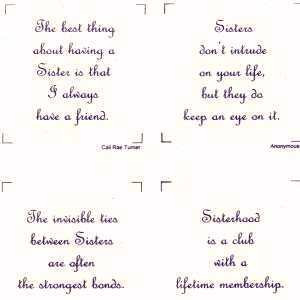 The best thing
about having a
Sister is that
I always
have a friend.
Cali Rae Turner
Sisters
don't intrude
on your life,
but they do
keep an eye on it.
Anonymous
The invisible ties
between Sisters
are often
the strongest bonds.
Sisterhood
is a club
with a
lifetime membership.